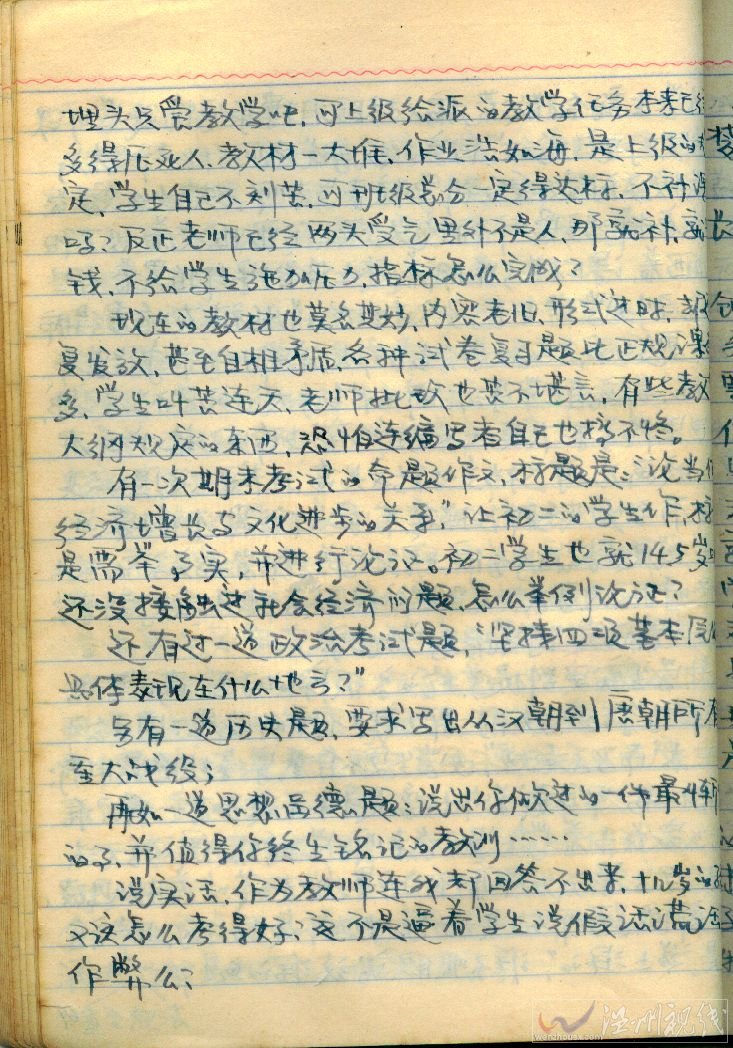 埋头只管教学吧,可上级给派的教学任务本来已经
多得压死人,教材一大堆,作业浩如海,是上级的规
定,学生自己不刻苦,可班级总分一定得达标,不补课
吗?反正老师已经两头受气里外不是人,那就补,就
钱,不给学生施加压力,指标怎么完成?
现在的教材也莫名其妙,内容老旧,形式过时,
复发放,甚至自相矛盾,各种试卷复习题比正规课
多,学生叫苦连天,老师批改也苦不堪言,有些教
大纲规定的东西,恐怕连编写者自己也搞不懂。
有一次期末考试的命题作文,标题是:“论当
经济增长与文化进步的关系,”让初二的学生作,
是需举事实,并进行论证。初二学生也就14.5岁
还没接触过社会经济问题,怎么举例论证?
还有过一道政治考试题,“坚持四项基本原
具体表现在什么地方?”
另有一道历史题,要求写出从汉朝到唐朝所有
至大战役;
再如一道思想品德题:说出你做过的一件最
的事,并值得你终生铭记的教训……
说实话,作为教师连我都回答不出来,十几岁的
又该怎么考得好;这不是逼着学生说假话谎话
作弊么;
温州视线
wenzhouvi.com